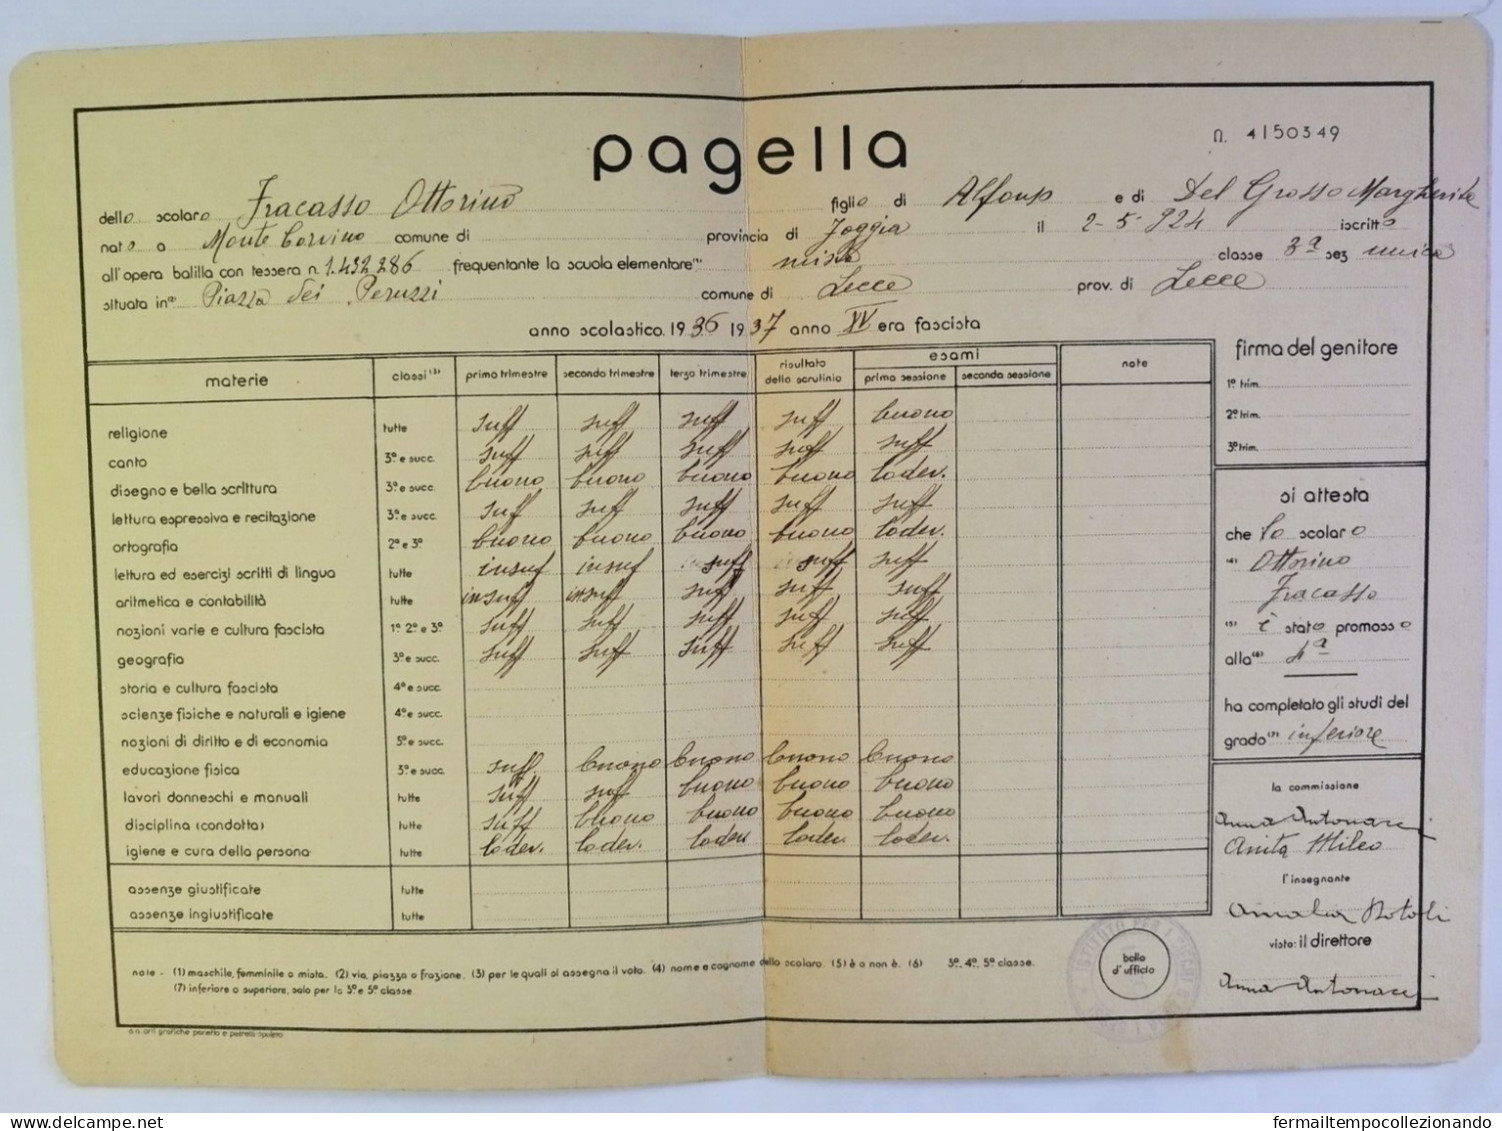 pagella
n. 4150349
dello scolaro Fracasso Ottorino figlio di Alfonso e di Del Grosso Margherita
nato a Monte Corvino comune di provincia di Foggia il 2-5-924 iscritto
all'opera balilla con tessera n. 1.432286 frequentante la scuola elementare (1) mista classe 3ª sez unica
situata in (2) Piazza dei Peruzzi comune di Lecce prov. di Lecce
anno scolastico 1936 1937 anno XV era fascista
materie classi (3) primo trimestre secondo trimestre terzo trimestre risultato dello scrutinio esami prima sessione seconda sessione note
religione tutte suff suff suff suff buono
canto 3ª e succ. suff suff suff suff suff
disegno e bella scrittura 3ª e succ. buono buono buono buono lodev.
lettura espressiva e recitazione 3ª e succ. suff suff suff suff suff
ortografia 2ª e 3ª buono buono buono buono lodev.
lettura ed esercizi scritti di lingua tutte insuf insuf suff suff suff
aritmetica e contabilità tutte insuff insuff suff suff suff
nozioni varie e cultura fascista 1ª 2ª e 3ª suff suff suff suff suff
geografia 3ª e succ. suff suff suff suff suff
storia e cultura fascista 4ª e succ.
scienze fisiche e naturali e igiene 4ª e succ.
nozioni di diritto e di economia 5ª e succ.
educazione fisica 3ª e succ. suff. buono buono buono buono
lavori donneschi e manuali tutte suff suff buono buono buono
disciplina (condotta) tutte suff buono buono buono buono
igiene e cura della persona tutte lodev. lodev. lodev lodev. lodev.
assenze giustificate tutte
assenze ingiustificate tutte
firma del genitore
1º trim.
2º trim.
3º trim.
si attesta
che lo scolaro
(4) Ottorino
Fracasso
(5) è stato promosso
alla (6) 4ª
ha completato gli studi del
grado (7) inferiore
la commissione
Anna Antonacci
Anita Mileo
l'insegnante
Amalia Rotoli
visto: il direttore
Anna Antonacci
bollo
d'ufficio
note - (1) maschile, femminile o mista. (2) via, piazza o frazione. (3) per le quali si assegna il voto. (4) nome e cognome dello scolaro. (5) è o non è. (6) 3ª, 4ª, 5ª classe.
(7) inferiore o superiore, solo per la 3ª e 5ª classe.
s.a. arti grafiche panetto e petrelli spoleto
fermailtempocollezionando